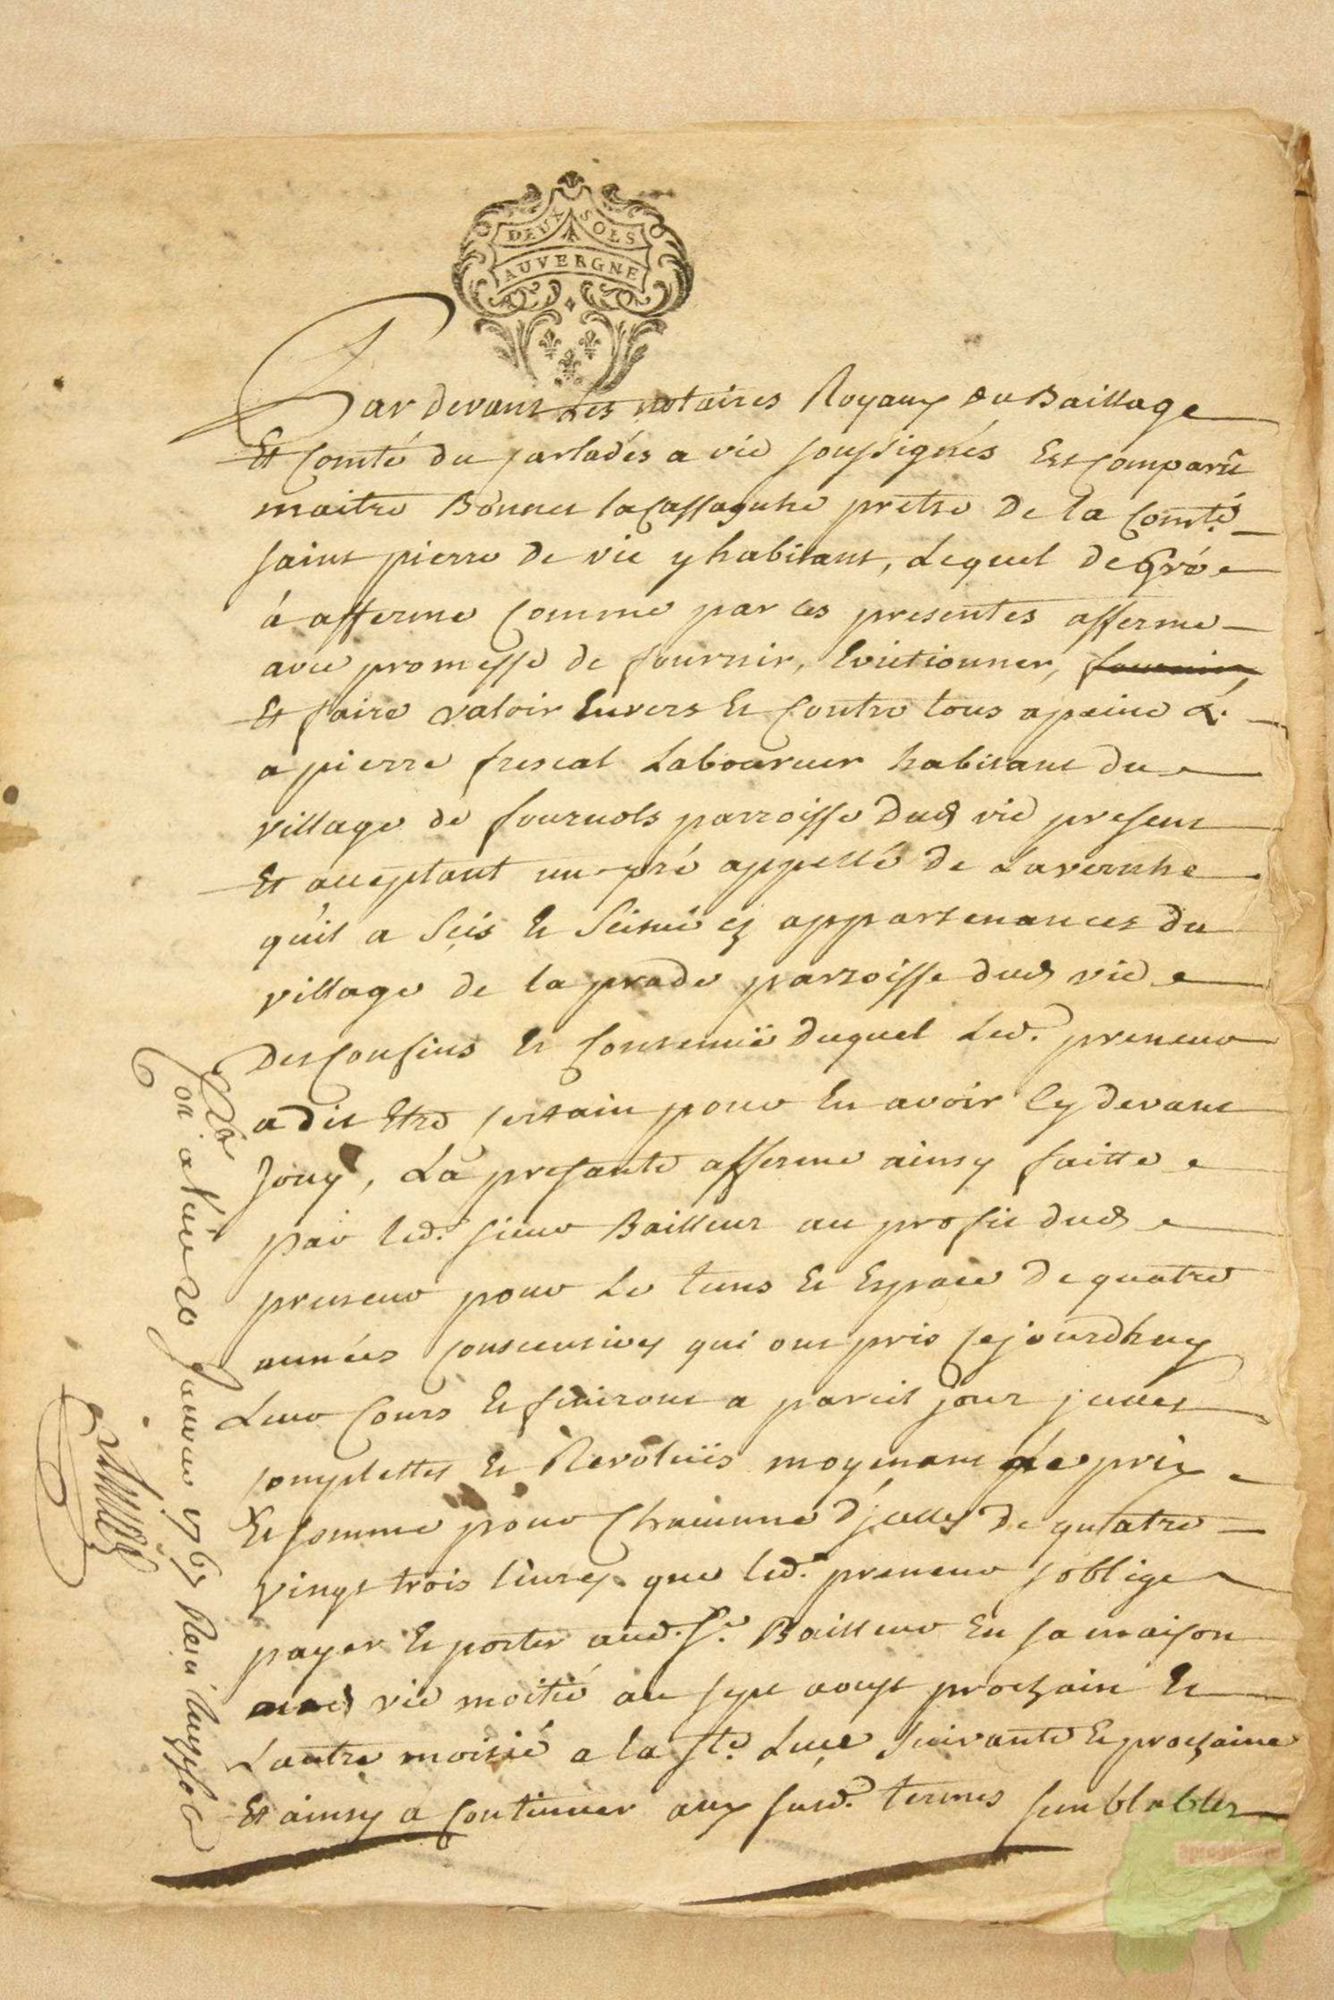 DEUX SOLS
AUVERGNE
Pardevant Les notaires Royaux du Baillage
Et Comté du Carladés a vic soussignés Est comparû
maitre Bonnet lacassagnhe pretre de la Comté.
saint pierre de vic y habitant, Lequel de Gré
á afferme Comme par ces presentes afferme
avec promesse de fournir, Evictionner, fournir,
Et faire valoir Envers Et Contre tous a peine &.
a pierre frescal Laboureur habitant du
village de fournols parroisse dud vic present
Et aceptant un pré appellé de Lavernhe
qu'il a Seis Et Scitué ez appartenances du
village de la prade parroisse dud vic
Des Confins Et Contenüe duquel Led. preneur
a dit Etre certain pour En avoir Cy devant
Jouy, La presante afferme ainsy faitte
par led. sieur Bailleur au profit dud
preneur pour Le tems Et Espace De quatre
années consecutives qui ont pris cejourdhuy
Leur Cours Et finiront a pareil jour jcelles
complettes Et Revolües moyenant le prix
Et somme pour Chacune d'jcelles de quatre
vingt trois livres que led. preneur s'oblige
payer Et porter aud. Sr. Bailleur En sa maison
aud vic moitié au sept aoust prochain Et
Lautre moitié a la Ste. Luce suivante Et prochaine
Et ainsy a Continuer aux susd. termes semblables
a vic 20 Janvier 1767 Reçu
aprogemere